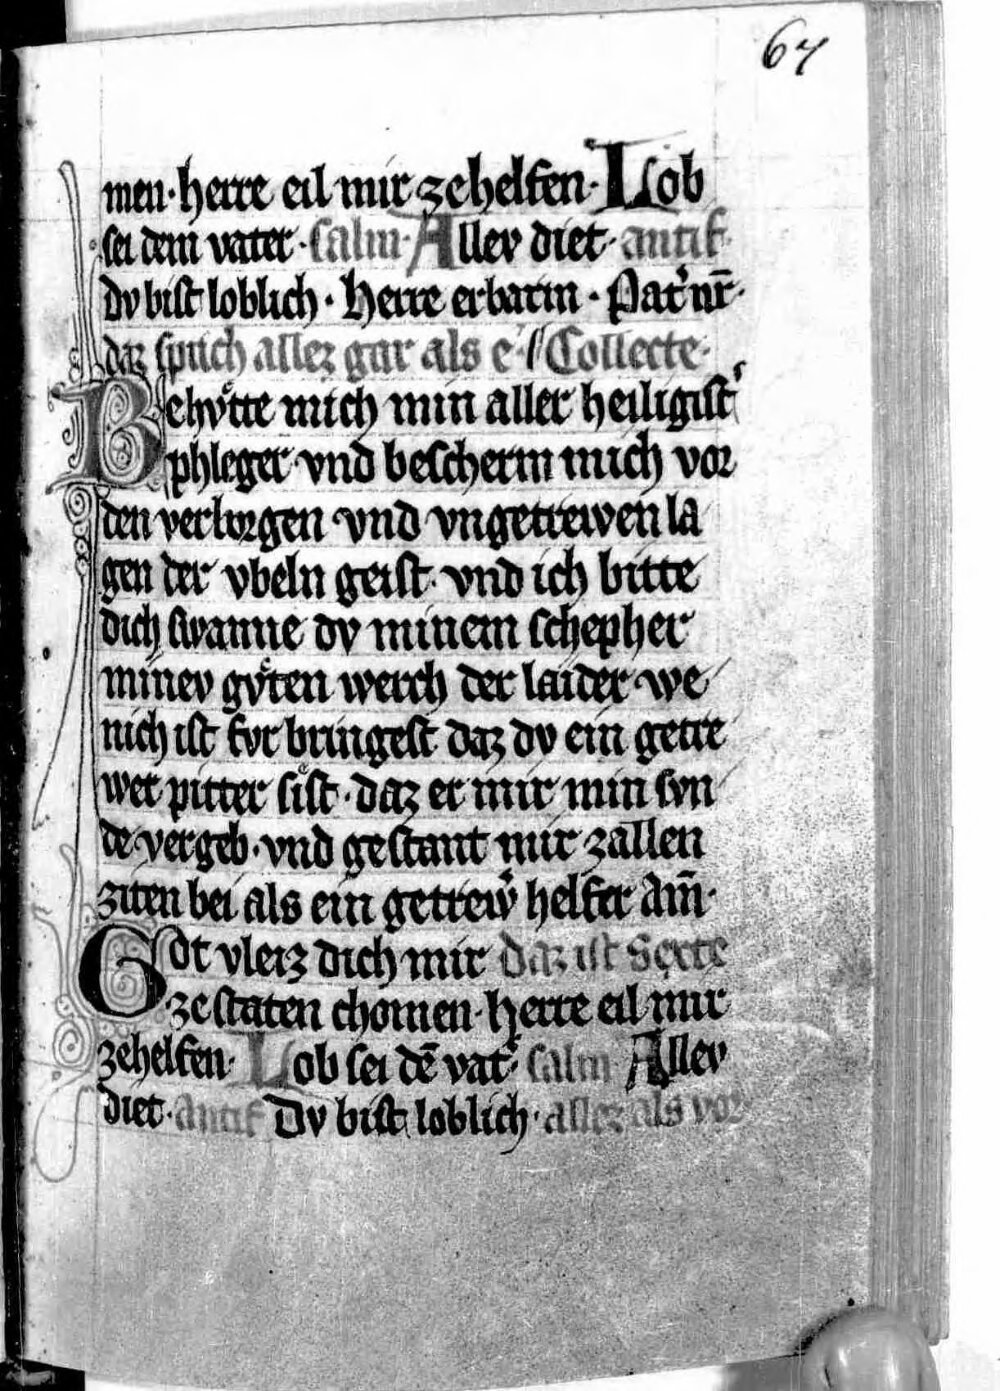 67
men · herre eil mir zehelfen · Lob
sei dem vater · salm · Allev diet · antif
Dv bist loblich · Herre erbarm · Pat̾ nr̄ ·
daz sprich allez gar als e · Collecte ·
Behvͤtte mich min aller heiligist̾
phleger vnd bescherm mich vor
den verborgen vnd vngetrewen la
gen der vbeln geist · vnd ich bitte
dich swanne dv minem schepher
minev gvͤten werch der laider we
nich ist fvr bringest daz dv ein getre
wer pitter sist · daz er mir min svn
de vergeb · vnd gestant mir zallen
ziten bei als ein getrew̾ helfer Am̄ ·
Got vleiz dich mir daz ist Sexte
ze staten chomen · herre eil mir
zehelfen · Lob sei dē vat̾ · salm Allev
diet · antif Dv bist loblich · allez als vor